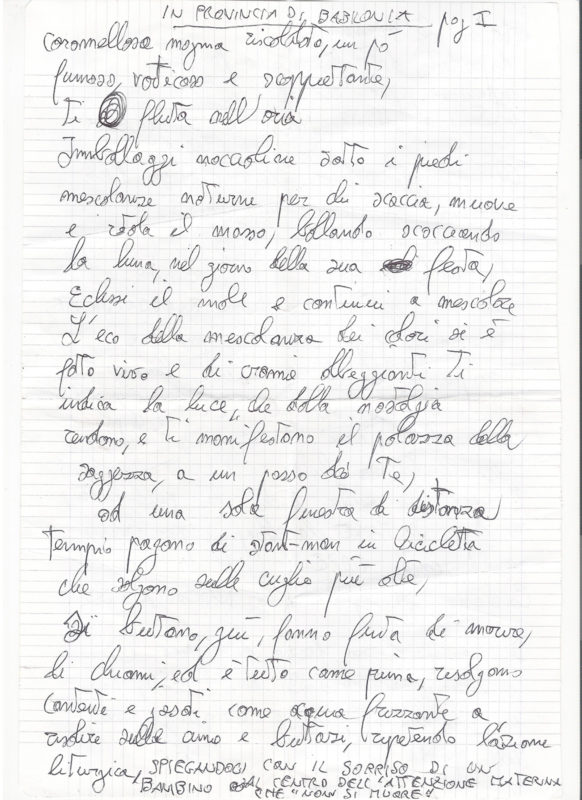 IN PROVINCIA DI BABILONIA pag I
caramellosa magma riscaldato, un pò
fumoso, vorticoso e scoppiettante,
ti fluta nell'aria
Imballaggi nocaoline sotto i piedi
mescolanze notturne per chi scaccia, muove
e rotola il masso, ballando scaccando
la luna, nel giorno della sua festa,
Eclissi il male e continui a mescolare
L'eco della mescolanza dei cori si è
fato vivo e di cromie albeggianti ti
indica la luce, che dalla nostalgia
rendono, e ti manifestano il palazzo della
saggezza, a un passo da Te,
ad una sola finestra di distanza
tempio pagano di stant-man in bicicletta
che salgono sulle guglie più alte,
Si buttano, giù, fanno finta di morire,
li chiami, ed è tutto come prima, risalgono
contenti e gasati come acqua frizzante a
risalire sulla cima e buttarsi, ripetendo l'azione
liturgica, SPIEGANDOCI CON IL SORRISO DI UN
BAMBINO AL CENTRO DELL'ATTENZIONE MATERNA
CHE "NON SI MUORE"